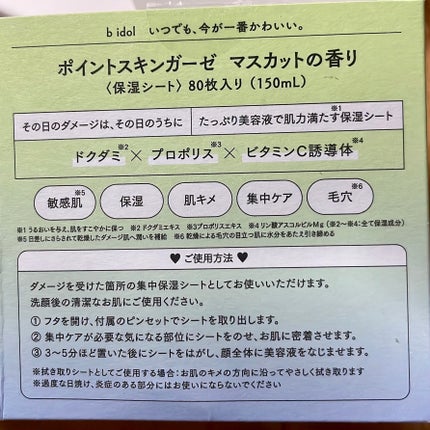 b idol いつでも、今が一番かわいい。
ポイントスキンガーゼ マスカットの香り
〈保湿シート〉80枚入り(150mL)
その日のダメージは、その日のうちに たっぷり美容液で肌力満たす※1保湿シート
ドクダミ※2×プロポリス※3×ビタミンC誘導体※4
敏感肌※5 保湿 肌キメ 集中ケア 毛穴※6
※1 うるおいを与え、肌をすこやかに保つ ※2 ドクダミエキス ※3プロポリスエキス ※4 リン酸アスコルビルMg(※2〜※4:全て保湿成分)
※5 日差しにさらされて乾燥したダメージ肌へ潤いを補給 ※6 乾燥による毛穴の目立つ肌に水分をあたえ引き締める
♥ ご使用方法 ♥
ダメージを受けた箇所の集中保湿シートとしてお使いいただけます。
洗顔後の清潔なお肌にご使用ください。
① フタを開け、付属のピンセットでシートを取り出します。
② 集中ケアが必要な気になる部位にシートをのせ、お肌に密着させます。
③ 3〜5分ほど置いた後にシートをはがし、顔全体に美容液をなじませます。
※拭き取りシートとしてご使用する場合:お肌のキメの方向に沿ってやさしく拭き取ります
※過度な日焼け、炎症のある部分にはお使いにならないでください